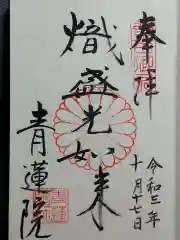 奉拝
令和三年
十月十七日
熾盛光如来
青蓮院